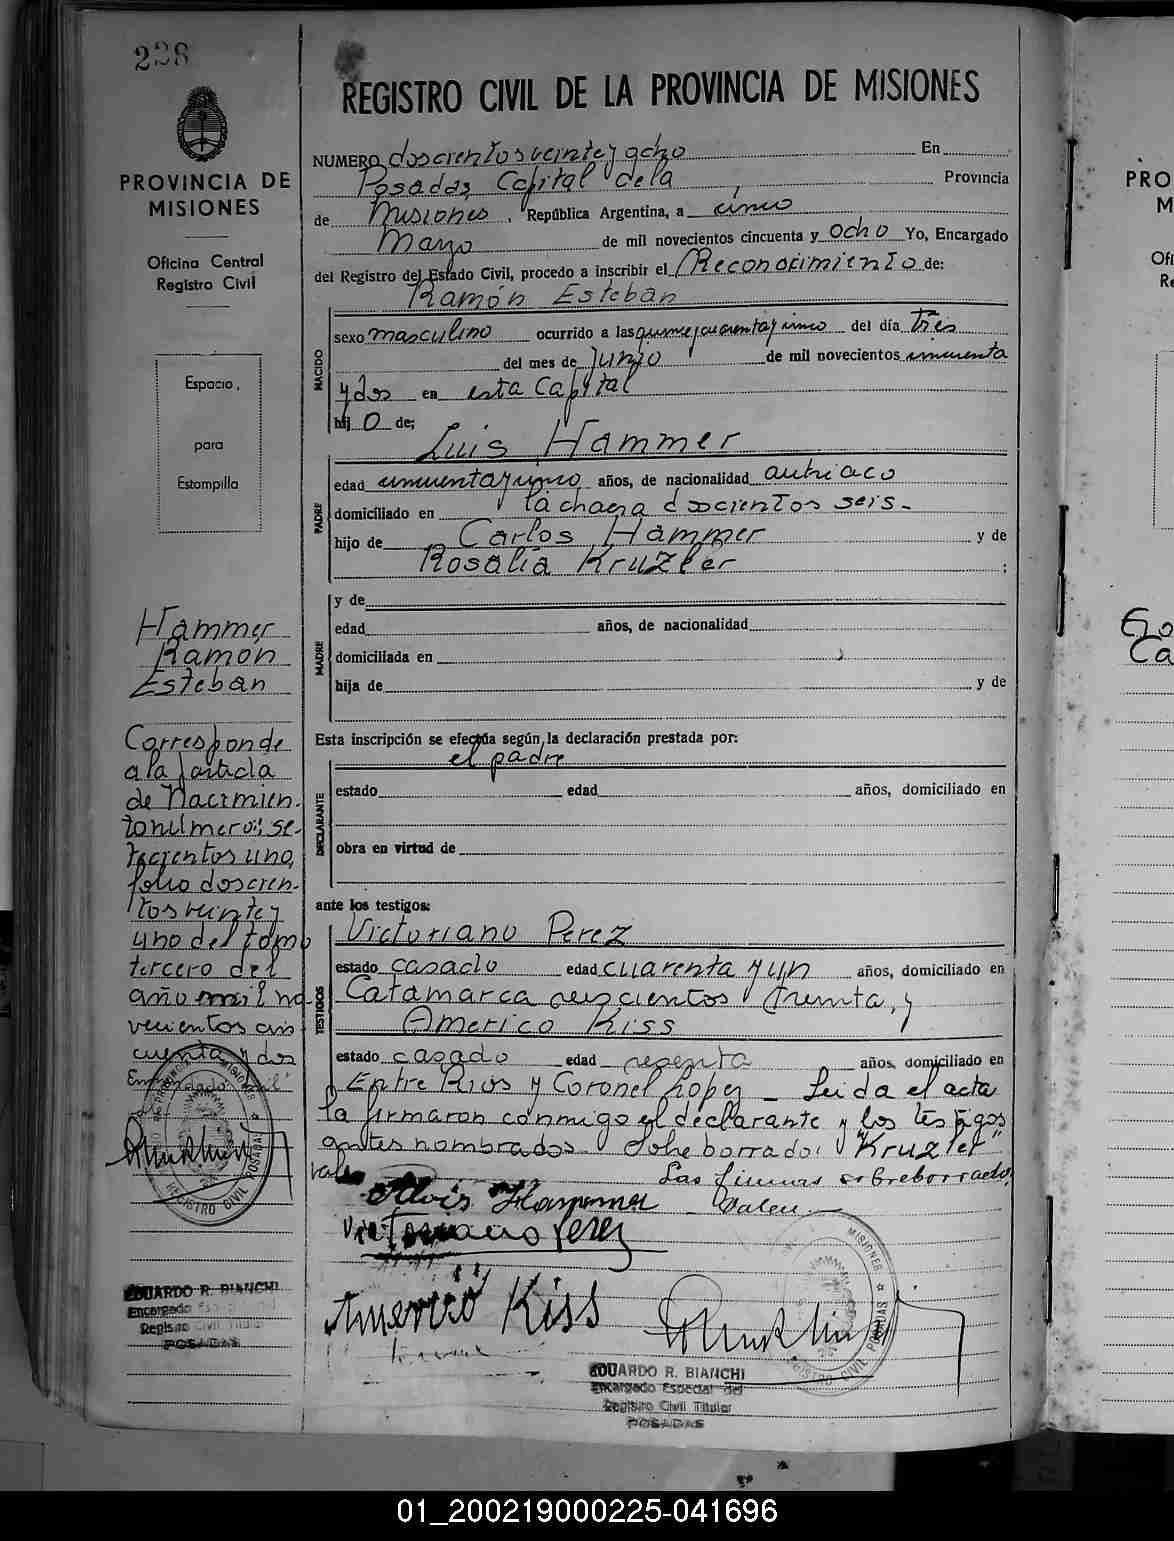 228
PROVINCIA DE
MISIONES
Oficina Central
Registro Civil
Espacio,
para
Estampilla
Hammer
Ramón
Esteban
Corresponde
a la partida
de Nacimien-
to número: se-
tecientos uno,
folio doscien-
tos veinte y
uno del tomo
tercero del
año mil no-
vecientos cin
cuenta y dos
EDUARDO R. BIANCHI
Encargado Especial del
Registro Civil Titular
POSADAS
REGISTRO CIVIL DE LA PROVINCIA DE MISIONES
NUMERO doscientos veinte y ocho En
Posadas, Capital de la Provincia
de Misiones, República Argentina, a cinco
Marzo de mil novecientos cincuenta y ocho Yo, Encargado
del Registro del Estado Civil, procedo a inscribir el Reconocimiento de:
Ramón Esteban
NACIDO
sexo masculino ocurrido a las quince y cuarenta y cinco del día Tres
del mes de Junio de mil novecientos cincuenta
y dos en esta Capital
hij o de;
Luis Hammer
PADRE
edad cincuenta y cinco años, de nacionalidad autriaco
domiciliado en la chacra doscientos seis.
hijo de Carlos Hammer y de
Rosalía Kruzler ;
MADRE
y de
edad años, de nacionalidad
domiciliada en
hija de y de
Esta inscripción se efectúa según la declaración prestada por:
el padre
DECLARANTE
estado edad años, domiciliado en
obra en virtud de
ante los testigos:
Victoriano Perez
TESTIGOS
estado casado edad cuarenta y un años, domiciliado en
Catamarca seiscientos treinta, y
Americo Kiss
estado casado edad sesenta años, domiciliado en
Entre Rios y Coronel Lopez _ Leida el acta
la firmaron conmigo el declarante y los testigos
antes nombrados. Sobre borrado: "Kruzler"
vale Las firmas sobreborrado,
Alois Hammer Valen.
Victoriano Perez
Americo Kiss
MISIONES
REGISTRO CIVIL POSADAS
EDUARDO R. BIANCHI
Encargado Especial del
Registro Civil Titular
POSADAS
PRO
M
Ofi
Re
Ca
01_200219000225-041696